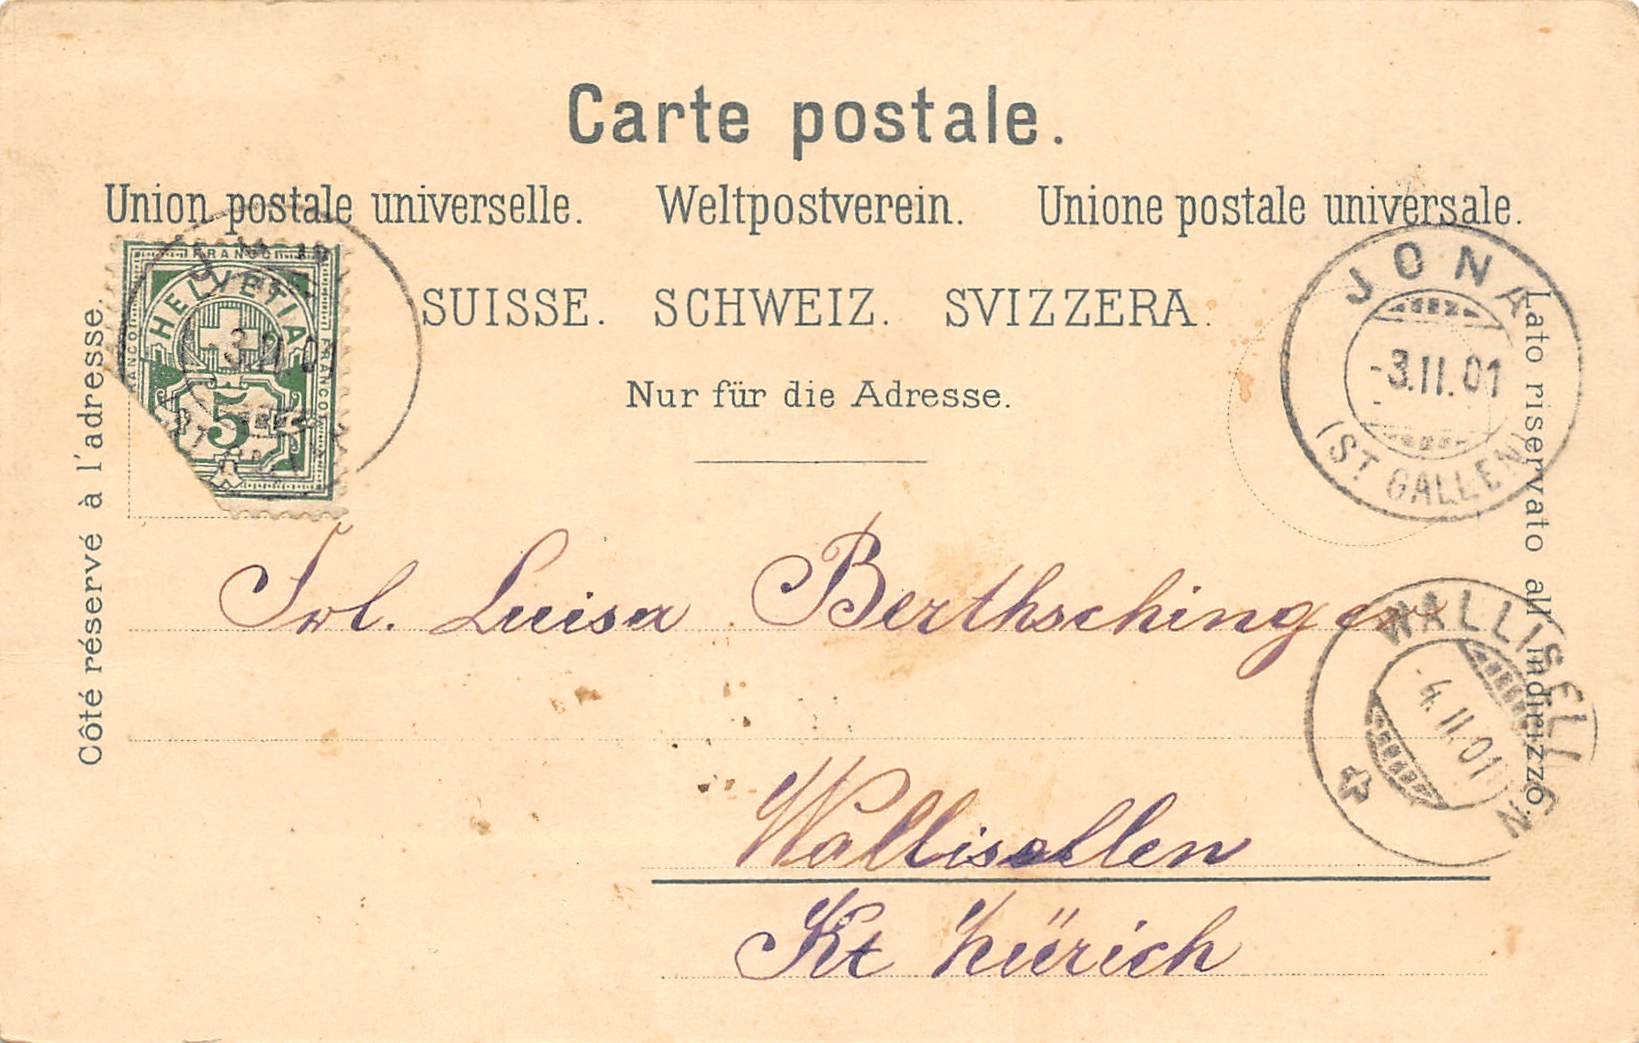 Carte postale.
Union postale universelle. Weltpostverein. Unione postale universale.
SUISSE. SCHWEIZ. SVIZZERA.
Nur für die Adresse.
Côté réservé à l'adresse.
Lato riservato all'indirizzo.
FRANCO
HELVETIA
FRANCO
FRANCO
5
JONA
-3.II.01
(ST GALLEN)
Frl. Luisa Berthschinger
WALLISELLEN
-4.II.01
Wallisellen
Kt Zürich